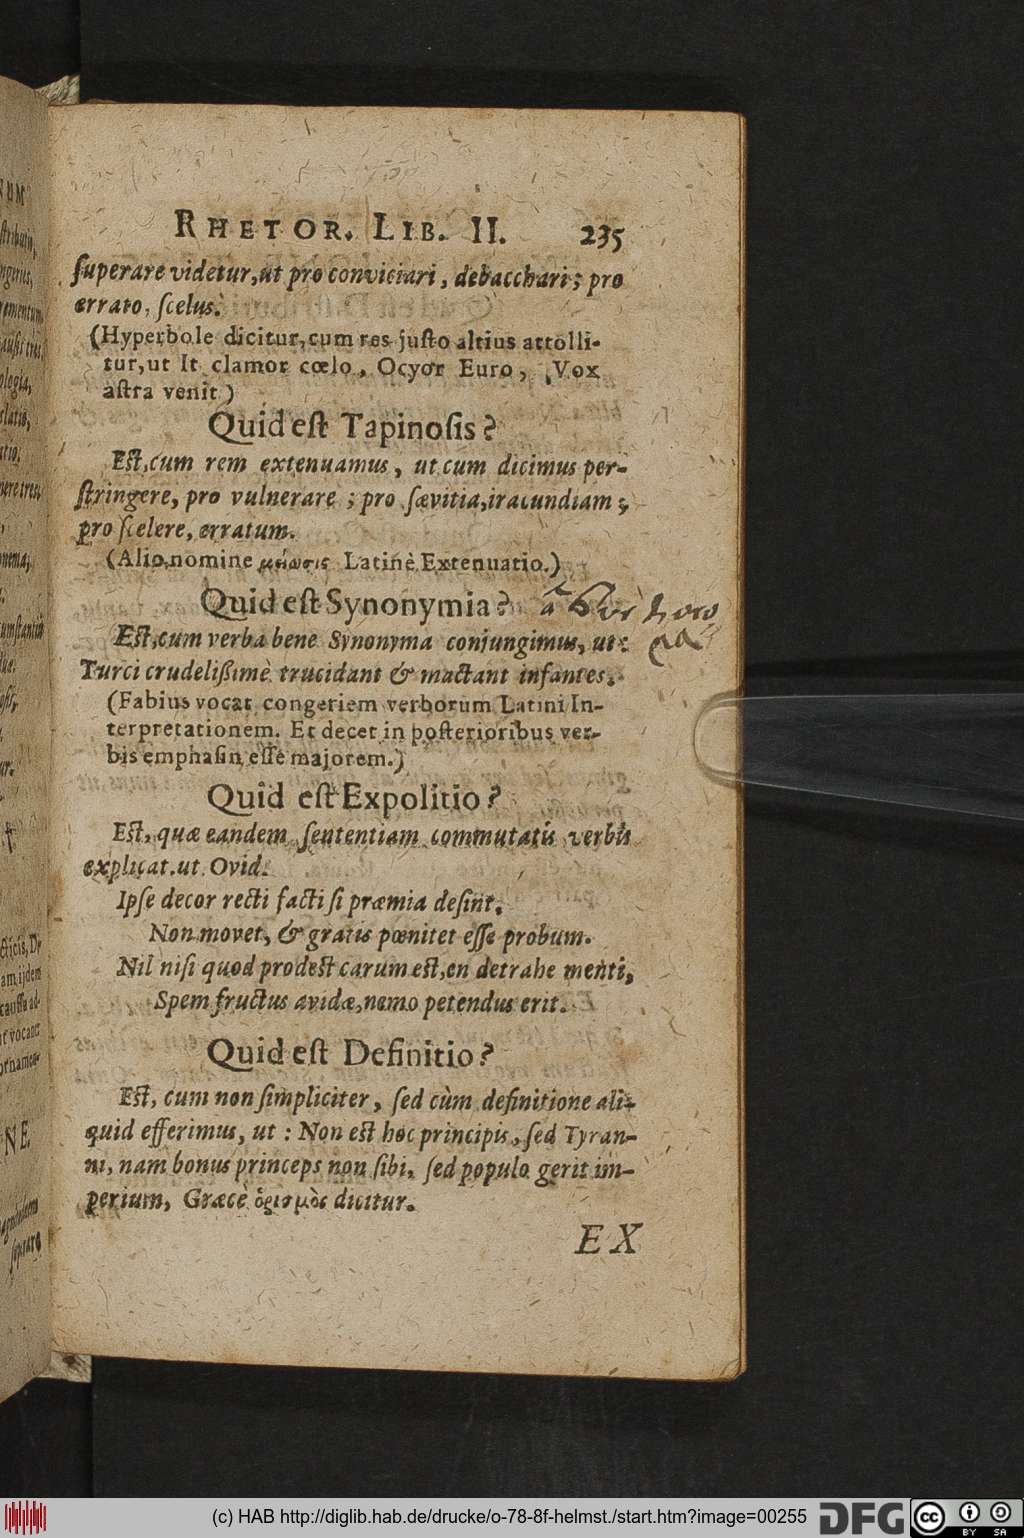 RHETOR. LIB. II. 235
ſuperare videtur, ut pro conviciari, debacchari; pro
errato, ſcelus.
(Hyperbole dicitur, cum res juſto altius attolli-
tur, ut It clamor cœlo, Ocyor Euro, Vox
aſtra venit)
Quid eſt Tapinoſis?
Eſt, cum rem extenuamus, ut cum dicimus per-
ſtringere, pro vulnerare; pro ſævitia, iracundiam;
pro ſcelere, erratum.
(Alio nomine μείωσις Latinè Extenuatio.)
Quid eſt Synonymia?
Eſt, cum verba bene Synonyma conjungimus, ut:
Turci crudelißimè trucidant & mactant infantes.
(Fabius vocat congeriem verborum Latini In-
terpretationem. Et decet in poſterioribus ver-
bis emphaſin eſſe majorem.)
Quid eſt Expolitio?
Eſt, quæ eandem ſententiam commutatis verbis
explicat. ut Ovid.
Ipſe decor recti facti ſi præmia deſint,
Non movet, & gratis pœnitet eſſe probum.
Nil niſi quod prodeſt carum eſt, en detrahe menti,
Spem fructus avidæ, nemo petendus erit.
Quid eſt Definitio?
Eſt, cum non ſimpliciter, ſed cùm definitione ali-
quid efferimus, ut: Non eſt hoc principis, ſed Tyran-
ni, nam bonus princeps non ſibi, ſed populo gerit im-
perium, Græcè ὁρισμὸς dicitur.
EX
(c) HAB http://diglib.hab.de/drucke/o-78-8f-helmst./start.htm?image=00255
DFG cc BY SA